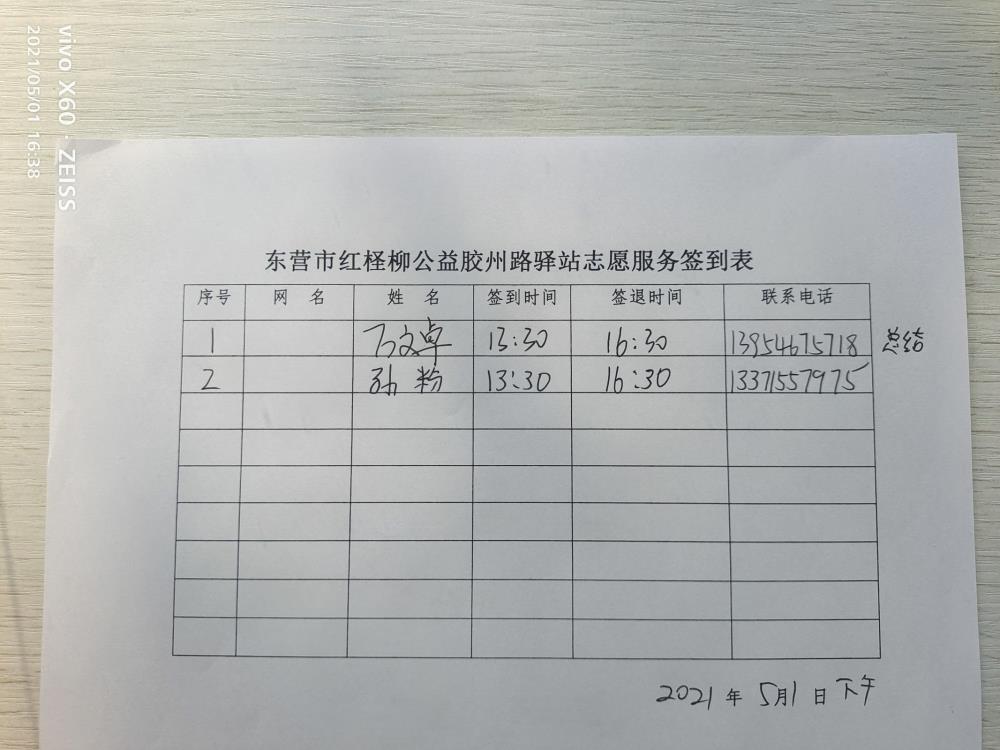 vivo X60 · ZEISS
2021/05/01 16:38
东营市红柽柳公益胶州路驿站志愿服务签到表
序号 网 名 姓 名 签到时间 签退时间 联系电话
1 文卓 13:30 16:30 13954675718 总结
2 孙粉 13:30 16:30 13371557975
2021年5月1日下午